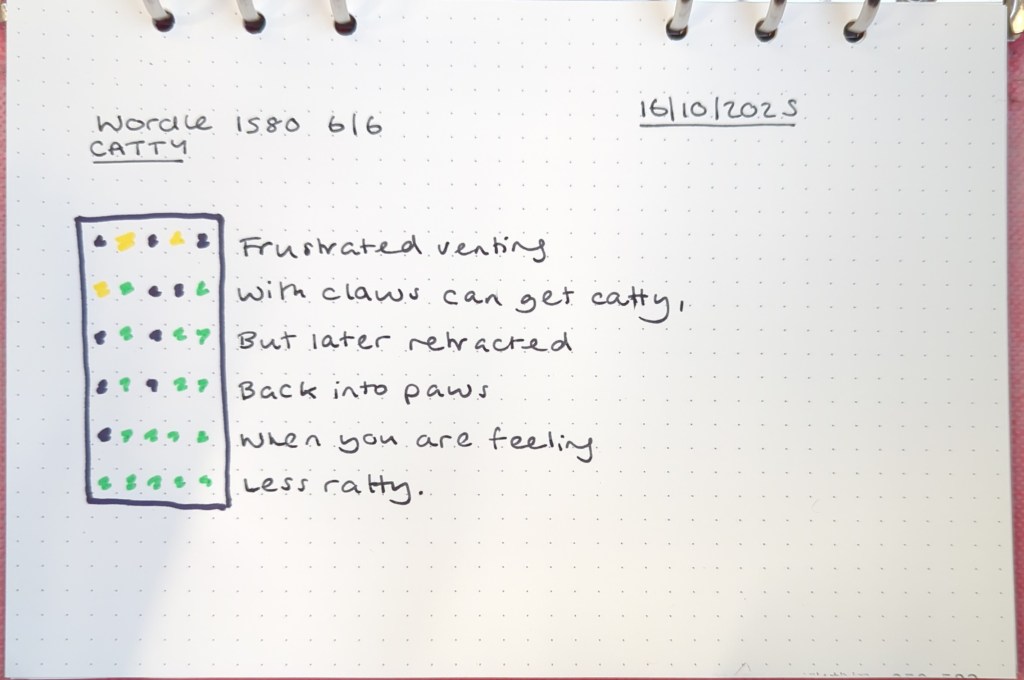 Wordle 1580 6/6
CATTY
16/10/2025
Frustrated venting
With claws can get catty,
But later retracted
Back into paws
When you are feeling
Less ratty.